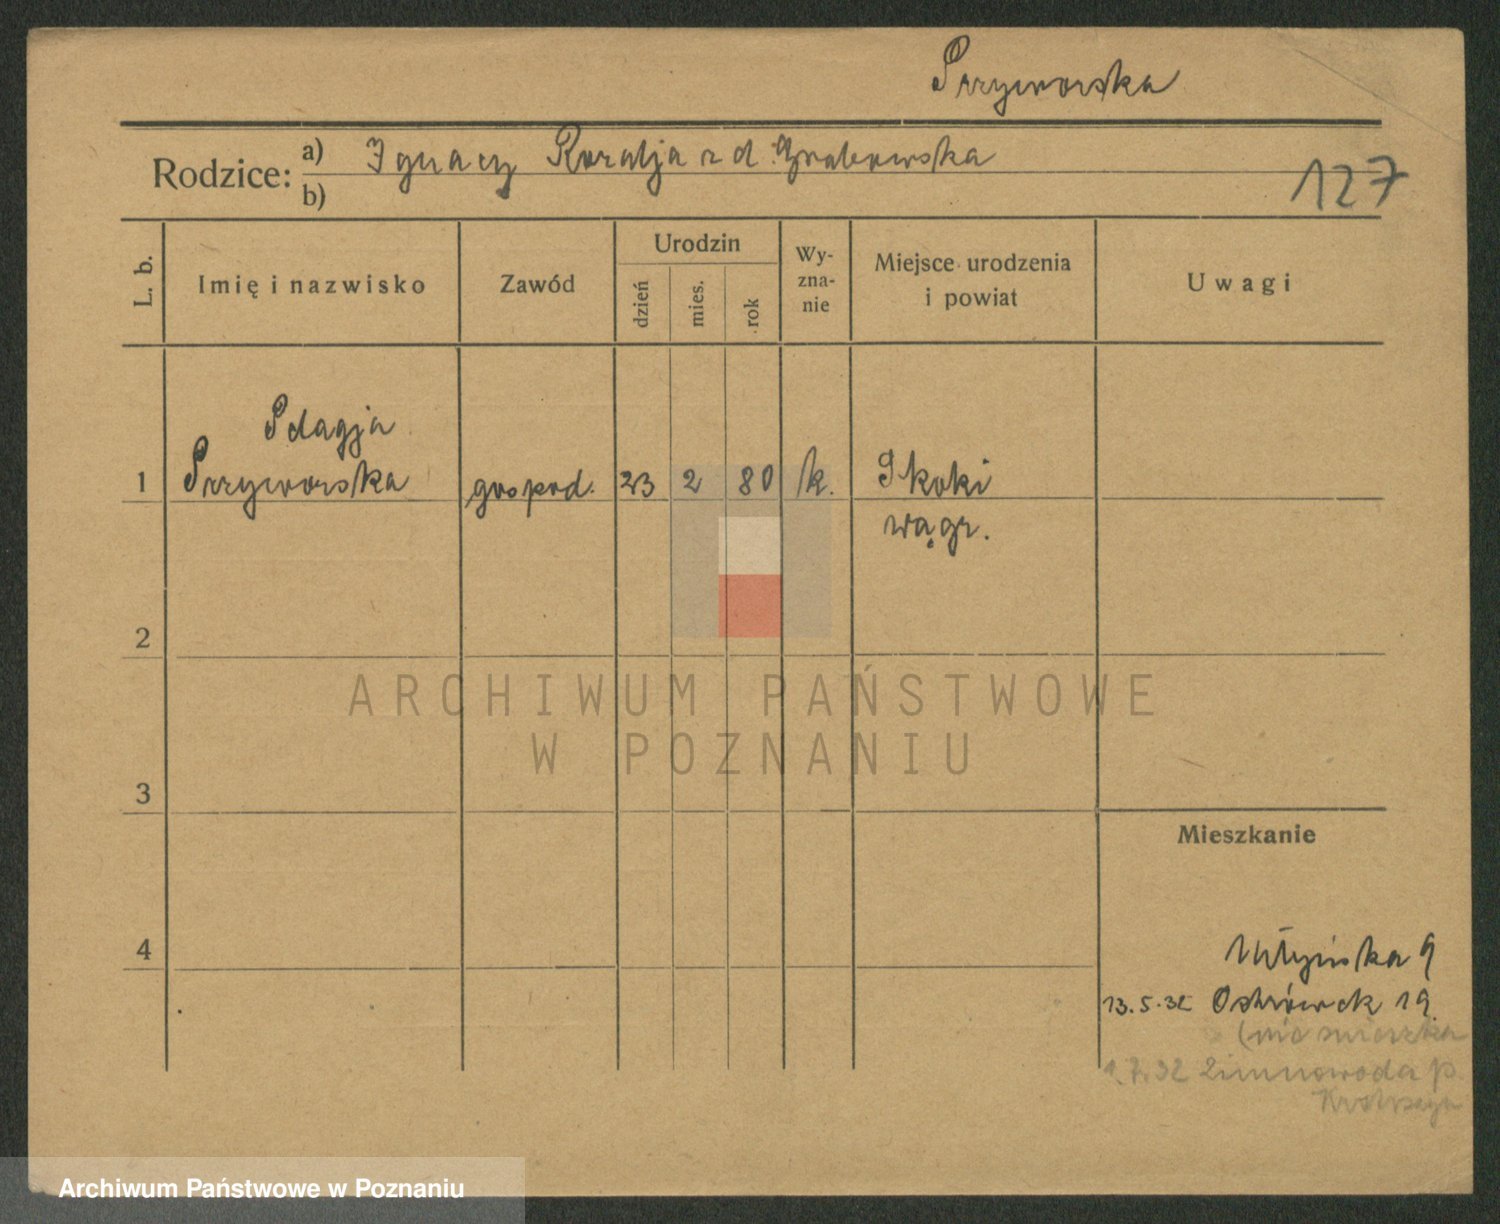 Przyworska
Rodzice: a) Ignacy Rozalja z d. Grabowska
b)
127
L. b.
Imię i nazwisko
Zawód
Urodzin
dzień
mies.
rok
Wy-
zna-
nie
Miejsce urodzenia
i powiat
Uwagi
Pelagja
1 Przyworska gospod. 23 2 80 k. Skoki
wągr.
2
ARCHIWUM PAŃSTWOWE
W POZNANIU
3
Mieszkanie
4
Młyńska 9
13.5.32 Ostrówek 19.
(nie mieszka
1.7.32 Zimnowoda p.
Krotoszyn
Archiwum Państwowe w Poznaniu